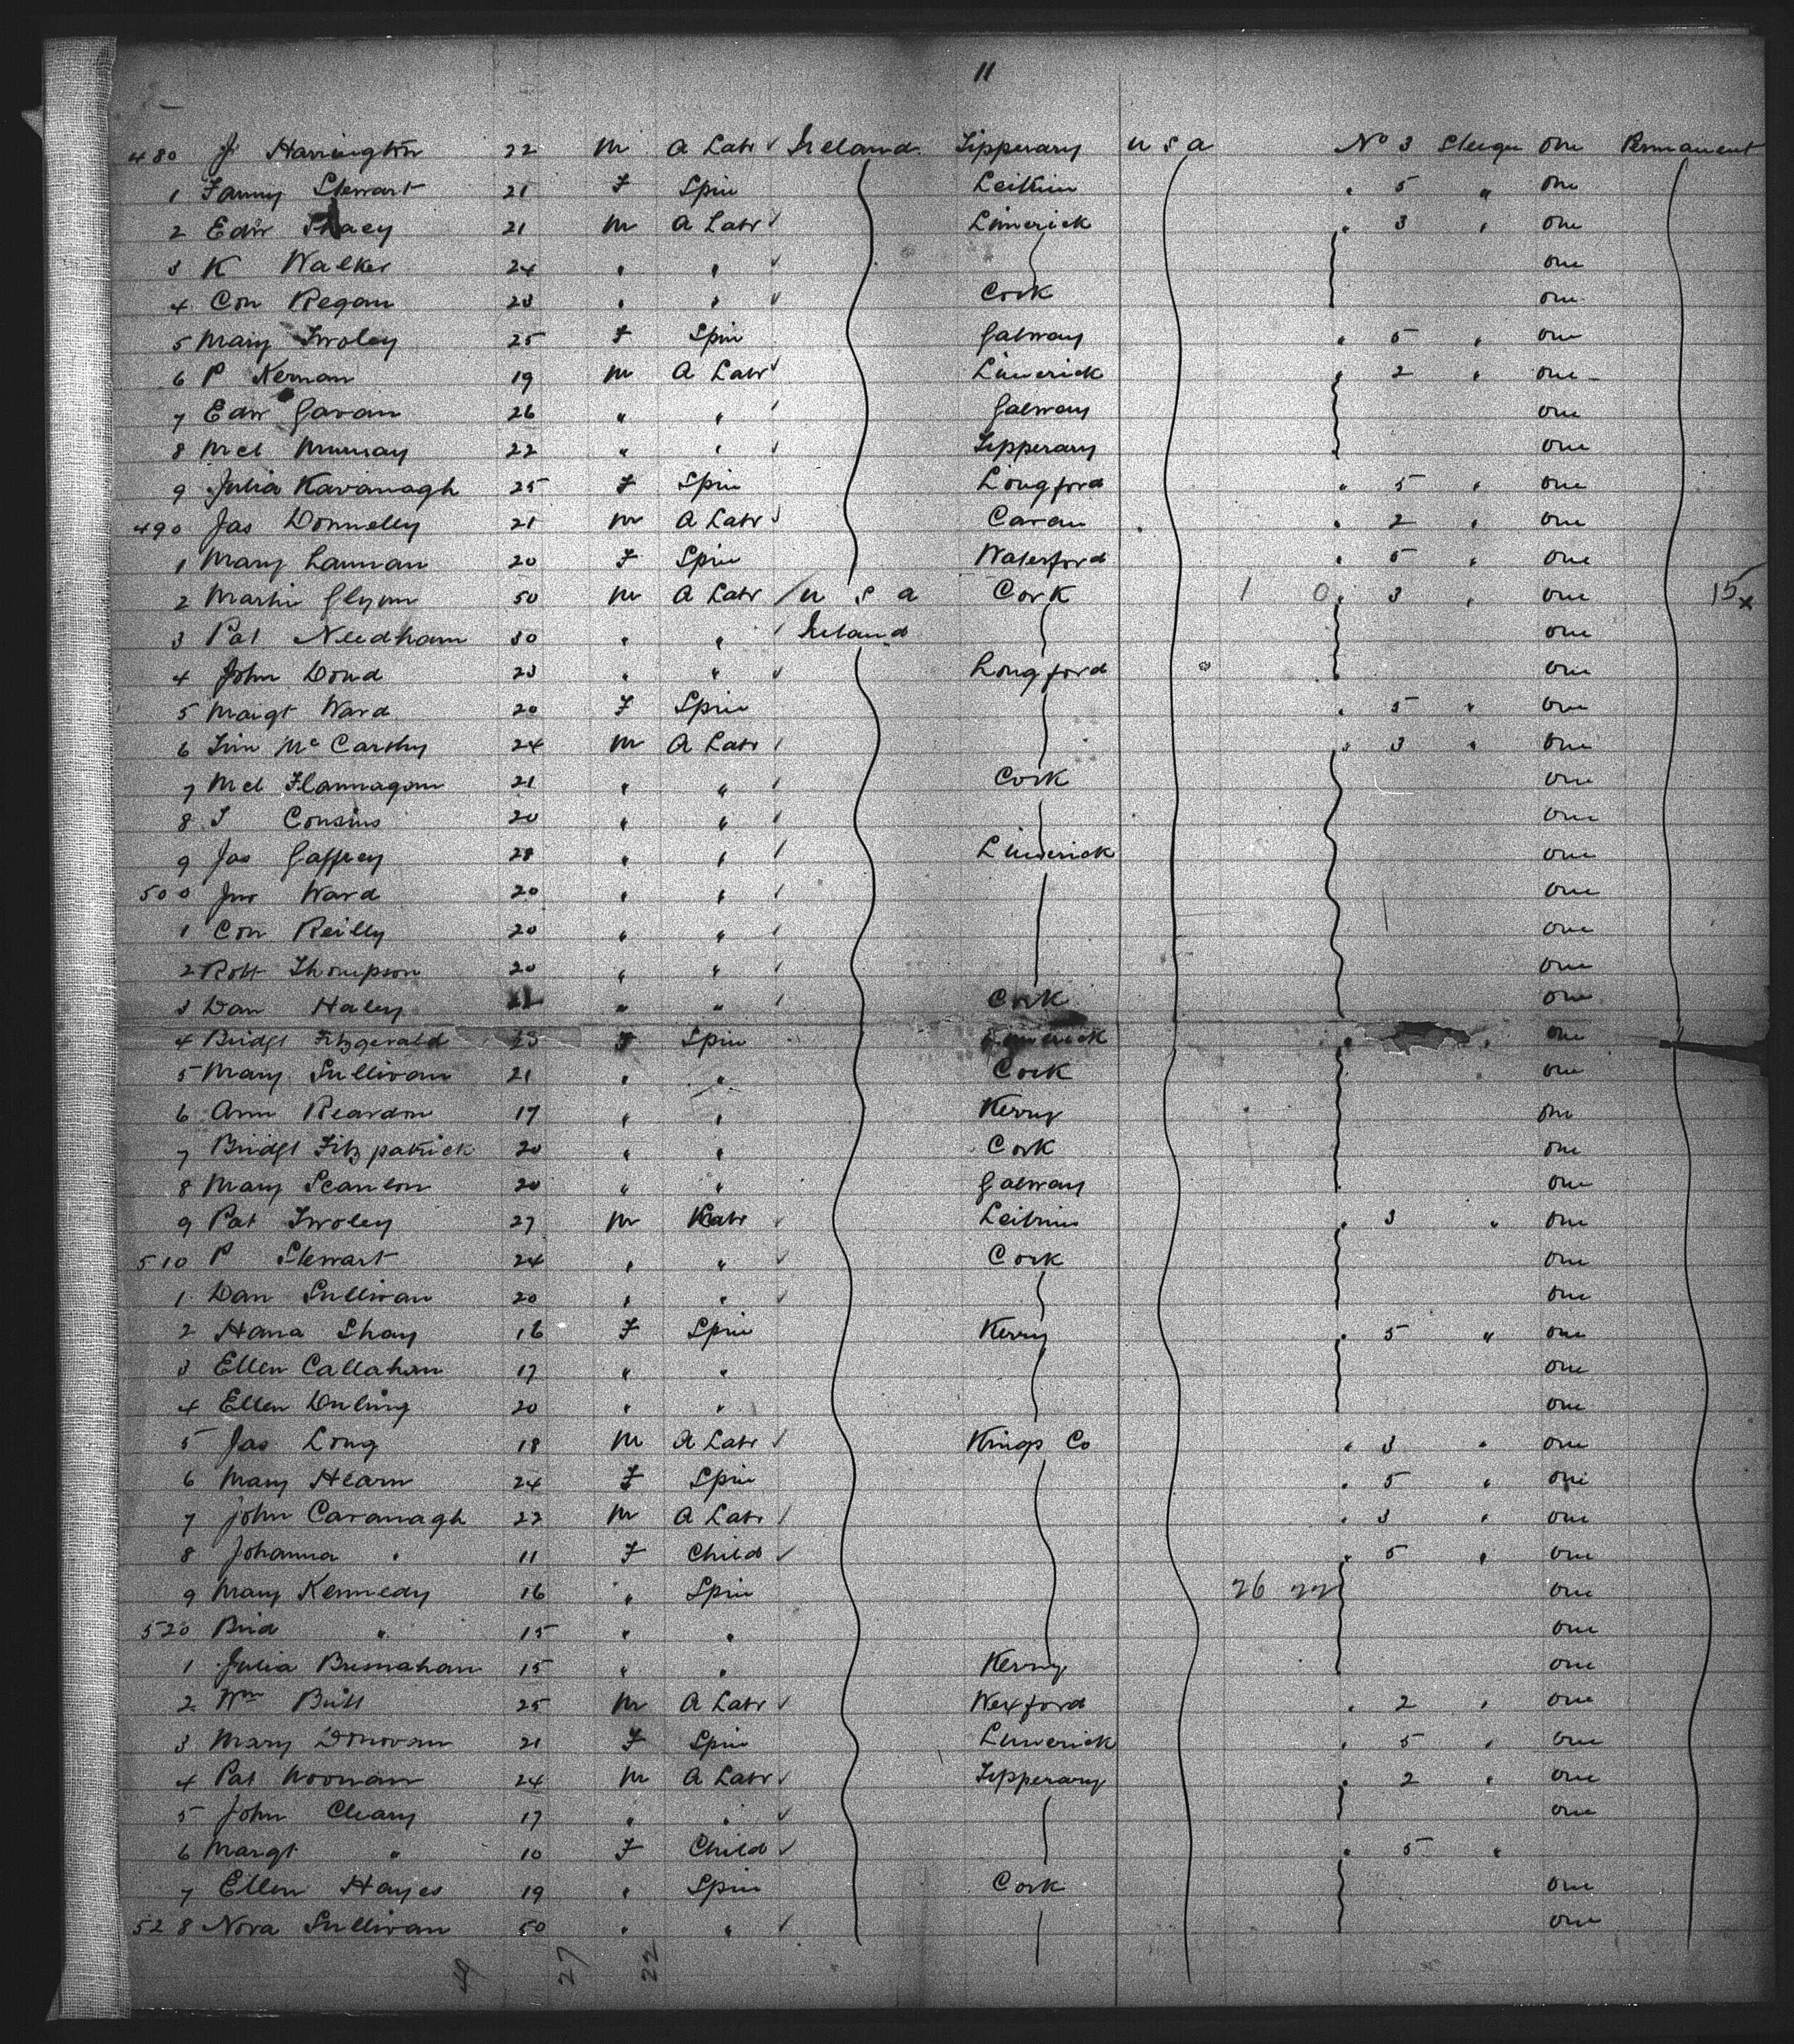 11
480 J Harrington 22 M A Labr ✓ Ireland Tipperary U S A No 3 Steerge One Permanent
1 Fanny Stewart 21 F Spin Leitrim " 5 " One
2 Edw 21 M A Labr ✓ Limerick " 3 " One
3 K Walker 24 " " ✓ One
4 Con Regan 23 " " ✓ Cork One
5 Mary 25 F Spin Galway " 5 " One
6 P Kernan 19 M A Labr ✓ Limerick " 2 " One
7 Edw Gavan 26 " " ✓ Galway One
8 Mcl Murray 22 " " ✓ Tipperary One
9 Julia Kavanagh 25 F Spin Longford " 5 " One
490 Jas Donnelly 21 M A Labr ✓ Cavan " 2 " One
1 Mary Lannan 20 F Spin Waterford " 5 " One
2 Martin Glynn 50 M A Labr ✓ U S A Cork 1 0 " 3 " One 15 x
3 Pat Needham 30 " " ✓ Ireland One
4 John Dowd 23 " " ✓ Longford One
5 Margt Ward 20 F Spin " 5 " One
6 Tim McCarthy 24 M A Labr ✓ " 3 " One
7 Mcl Flannagan 21 " " ✓ Cork One
8 Cousins 20 " " ✓ One
9 Jas Gaffney 28 " " ✓ Limerick One
500 Jno Ward 20 " " ✓ One
1 Con Reilly 20 " " ✓ One
2 Robt Thompson 20 " " ✓ One
3 Dan Haley " " ✓ Cork One
4 Bridgt Fitzgerald 23 F Spin Limerick " " One
5 Mary Sullivan 21 " " Cork One
6 Ann Reardon 17 " " Kerry One
7 Bridgt Fitzpatrick 20 " " Cork One
8 Mary Scanlon 20 " " Galway One
9 Pat 27 M Labr ✓ Leitrim " 3 " One
510 P Stewart 24 " " ✓ Cork One
1 Dan Sullivan 20 " " ✓ One
2 Hana Shay 16 F Spin Kerry " 5 " One
3 Ellen Callahan 17 " " One
4 Ellen 20 " " One
5 Jas Long 18 M A Labr ✓ Kings Co " 3 " One
6 Mary Hearn 24 F Spin " 5 " One
7 John Cavanagh 22 M A Labr ✓ " 3 " One
8 Johanna " 11 F Child ✓ " 5 " One
9 Mary Kennedy 16 " Spin 26 22 One
520 Brid " 15 " " One
1 Julia Bresnahan 15 " " Kerry One
2 Wm 25 M A Labr ✓ Wexford " 2 " One
3 Mary Donovan 21 F Spin Limerick " 5 " One
4 Pat Noonan 24 M A Labr ✓ Tipperary " 2 " One
5 John Cleary 17 " " ✓ One
6 Margt " 10 F Child ✓ " 5 "
7 Ellen Hayes 19 " Spin Cork One
528 Nora Sullivan 50 " " ✓ One
27 22